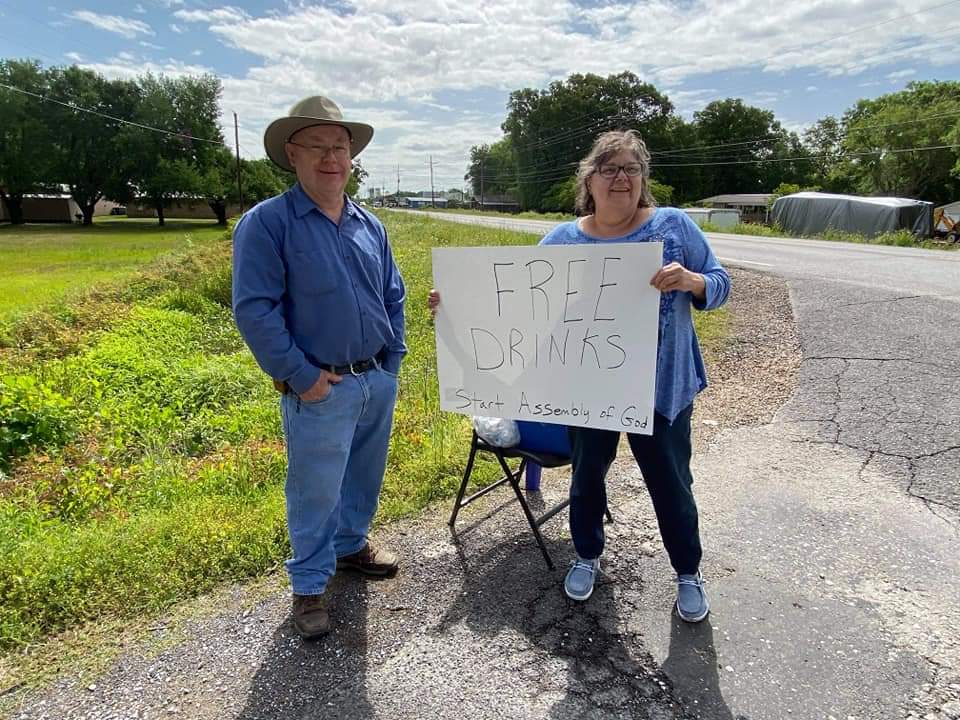 FREE
DRINKS
Start Assembly of God